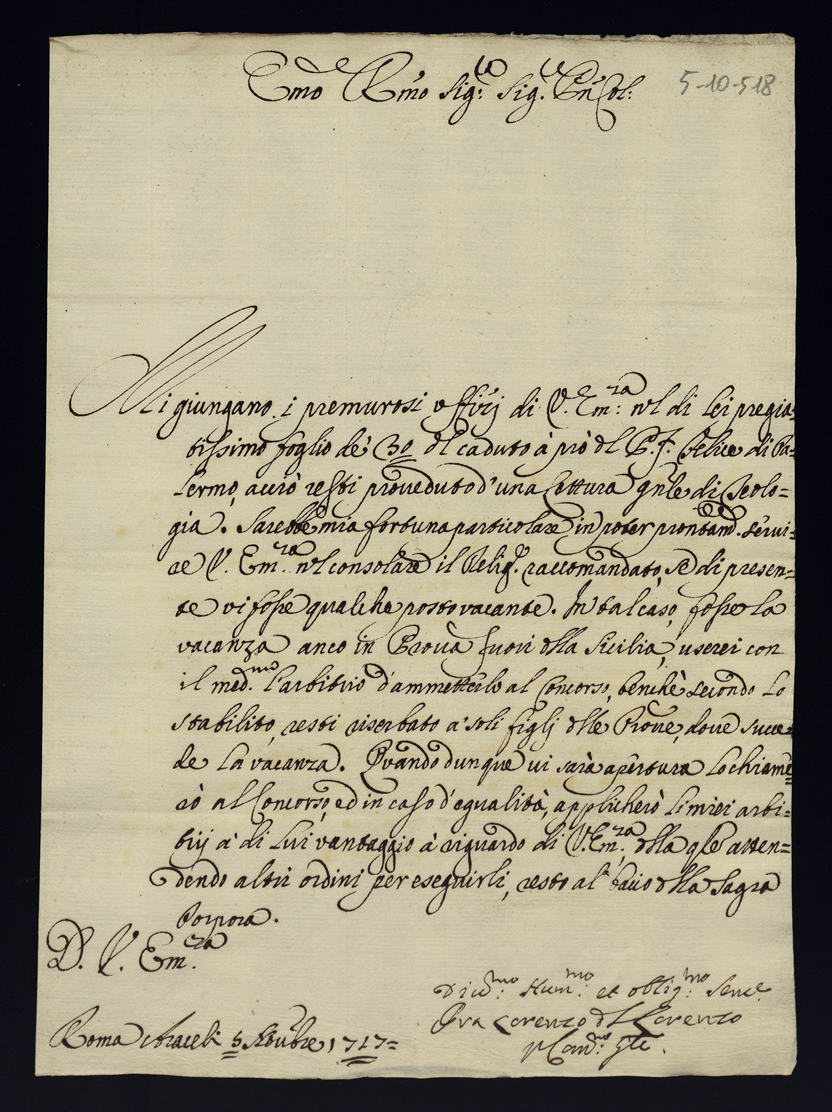 Emo Rmo Sig:re Sig:re Prn Col:
5-10-518
Mi giungano i premurosi uffizj di V. Em:za nel di lei pregia=
tissimo foglio de' 30 del caduto à prò del P. F. Felice di Pa=
lermo, acciò resti proveduto d'una Lettura gnle di Teolo=
gia. Sarebbe mia fortuna particolare in poter prontam. servi=
re V. Em:za nel consolare il Relig. raccomandato, se di presen=
te vi fosse qualche posto vacante. In tal caso, fosse la
vacanza anco in Provà fuori della Sicilia, userei con
il med:mo l'arbitrio d'ammetterlo al Concorso, benchè secondo lo
stabilito, resti riserbato a' soli figlj delle Provè, dove succe=
de la vacanza. Quando dunque vi sarà apertura lo chiame=
rò al Concorso, ed in caso d'egualità, applicherò li miei arbi=
trij à di lui vantaggio à riguardo di V. Em:za, dalla qle atten=
dendo altri ordini per eseguirli, resto al bacio della Sagra
Porpora.
D. V. Em:za
Div:mo Hum:mo et oblig:mo Serv.e
Fra Lorenzo di S. Lorenzo
Roma Araceli 5 1717=